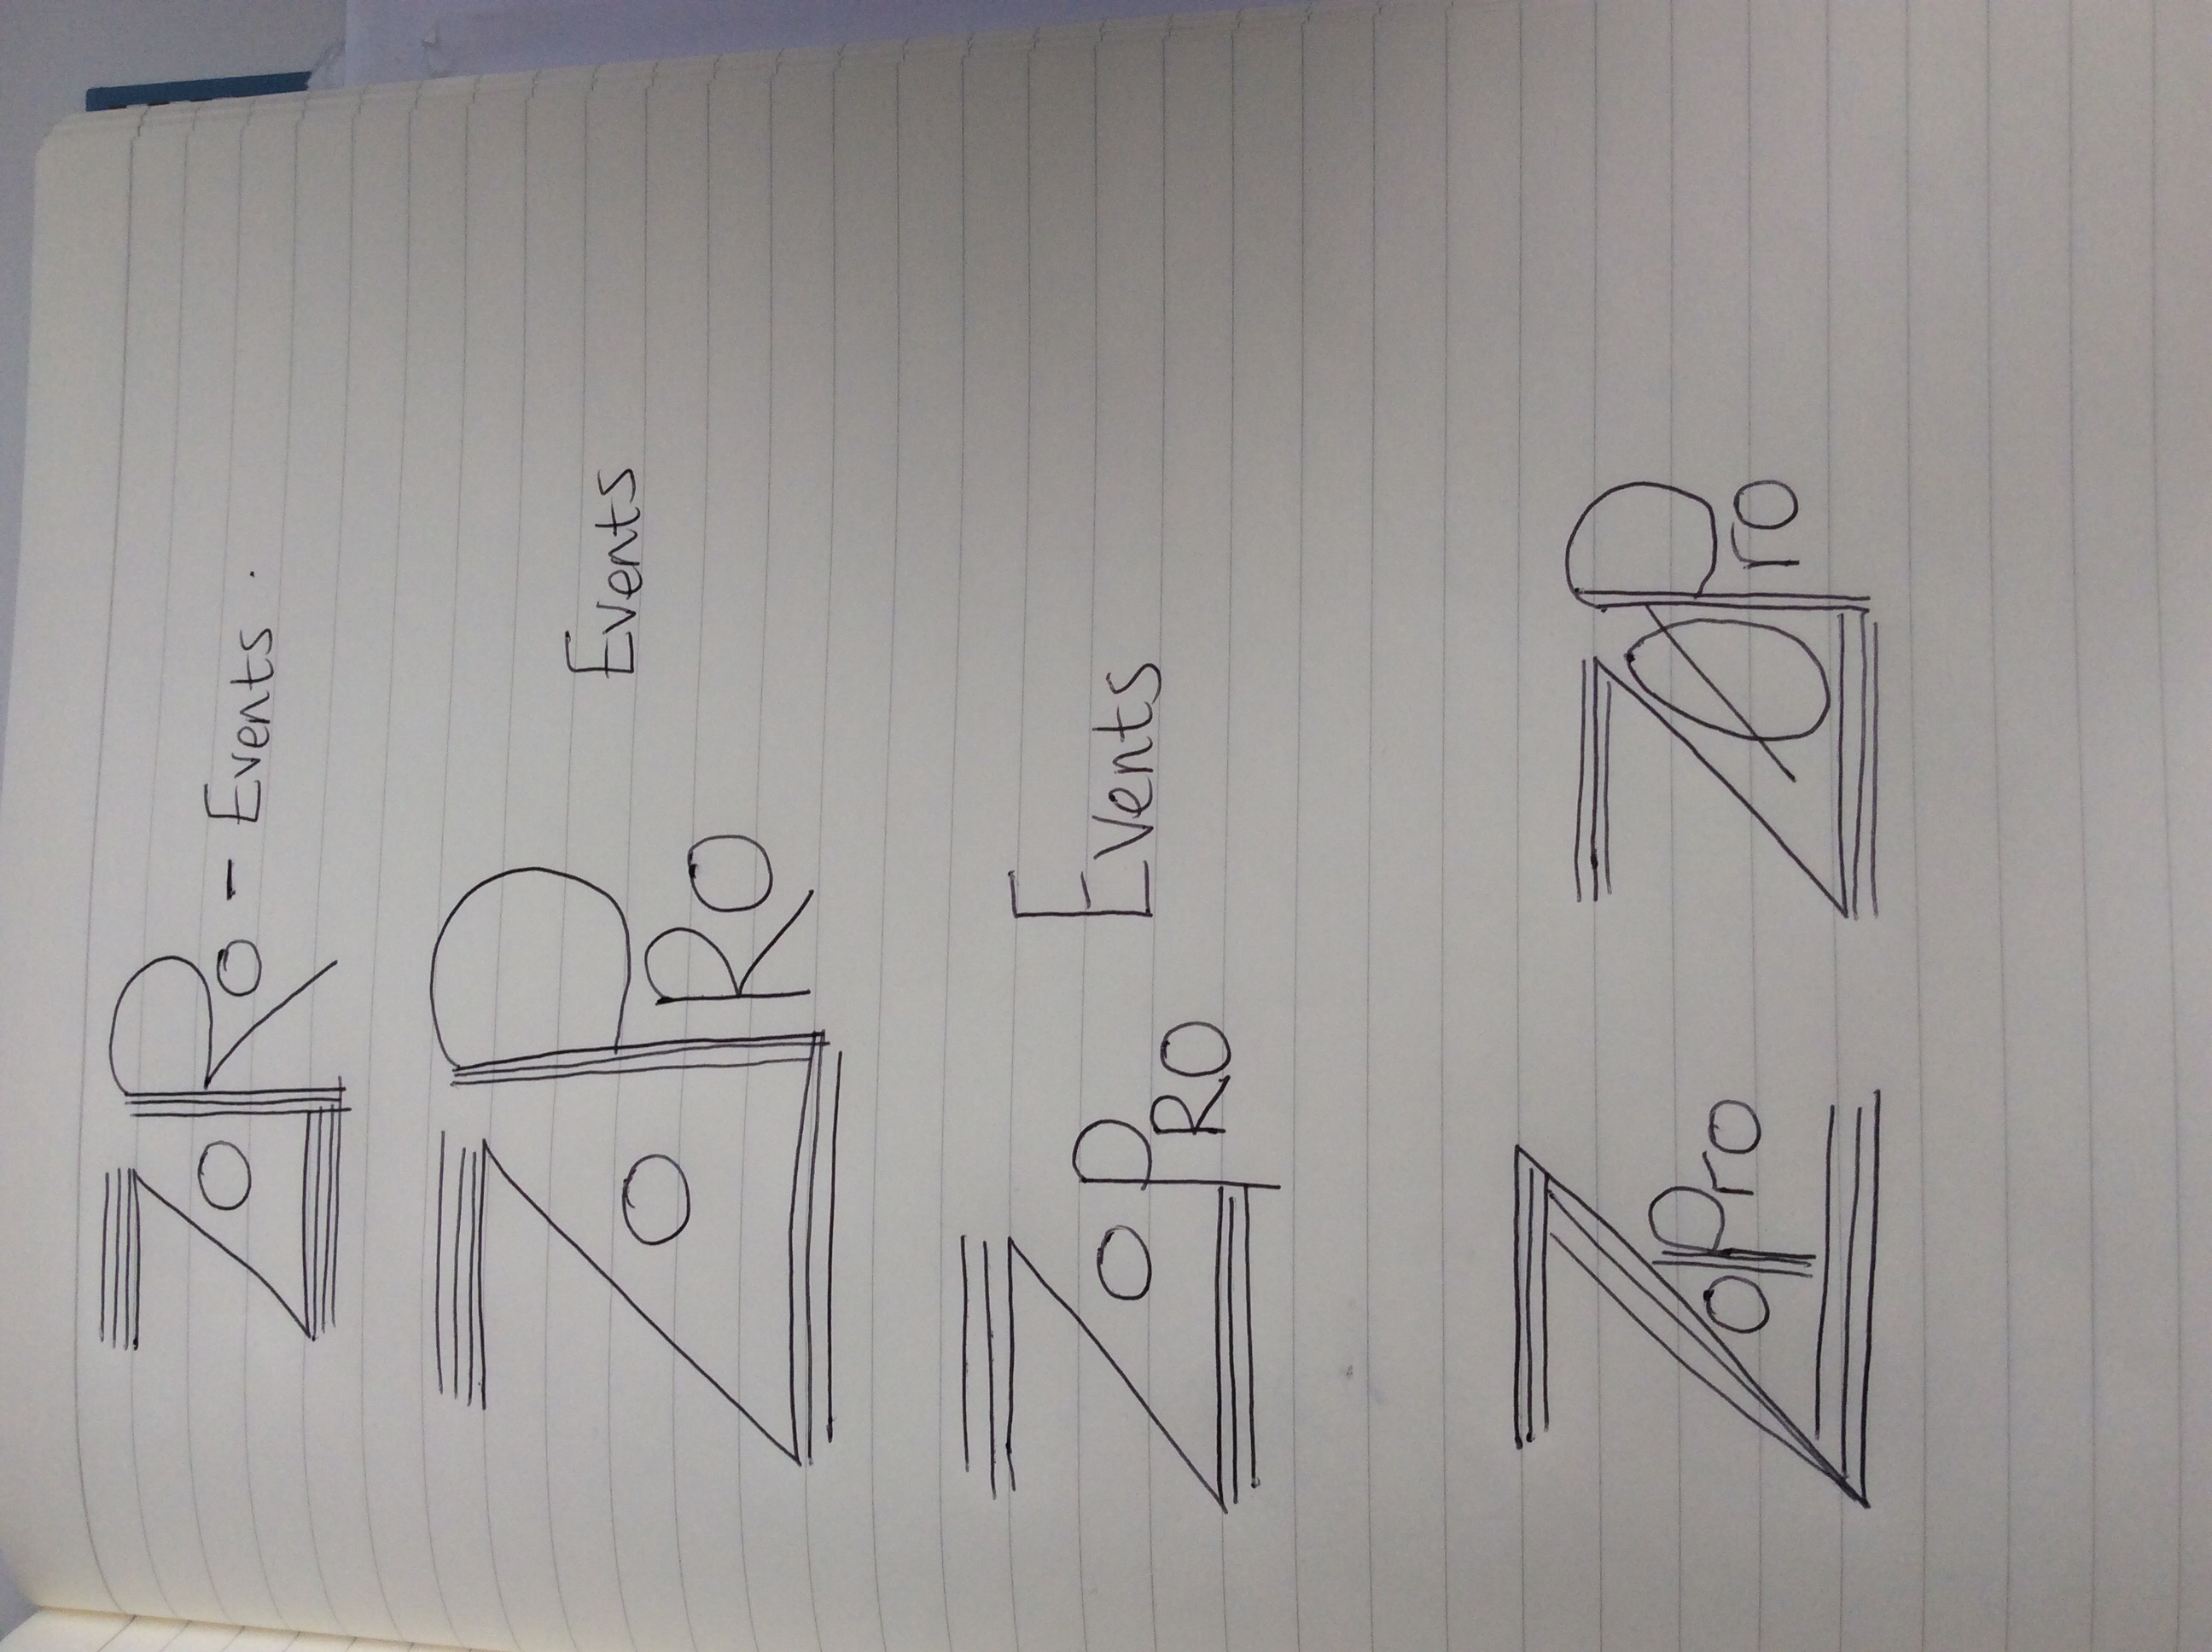 ZoRo - Events.
ZoPRO Events
ZoPRO Events
ZoPro ZOPro